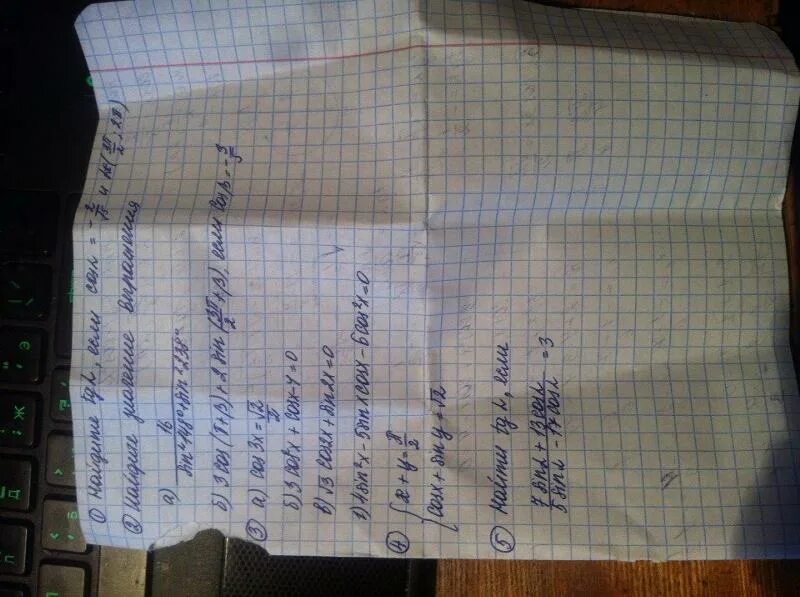 ① Найдите tg α, если cos α = - 2/√5 и α∈(3π/2; 2π)
② Найдите значение выражения
а) 16 / sin²
б) 3 cos(π+β)+2 sin(3π/2+β), если cos β = -
③ а) cos 3x = √2/2
б) 3 cos²x + cos x - 4 = 0
в) √3 cos x + sin 2x = 0
г) 4 sin²x - 5 sin x cos x - 6 cos²x = 0
④ { x + y = π/2
{ cos x + sin y = √2
⑤ Найти tg α, если
(7 sin α + 13 cos α) / (5 sin α - 17 cos α) = 3